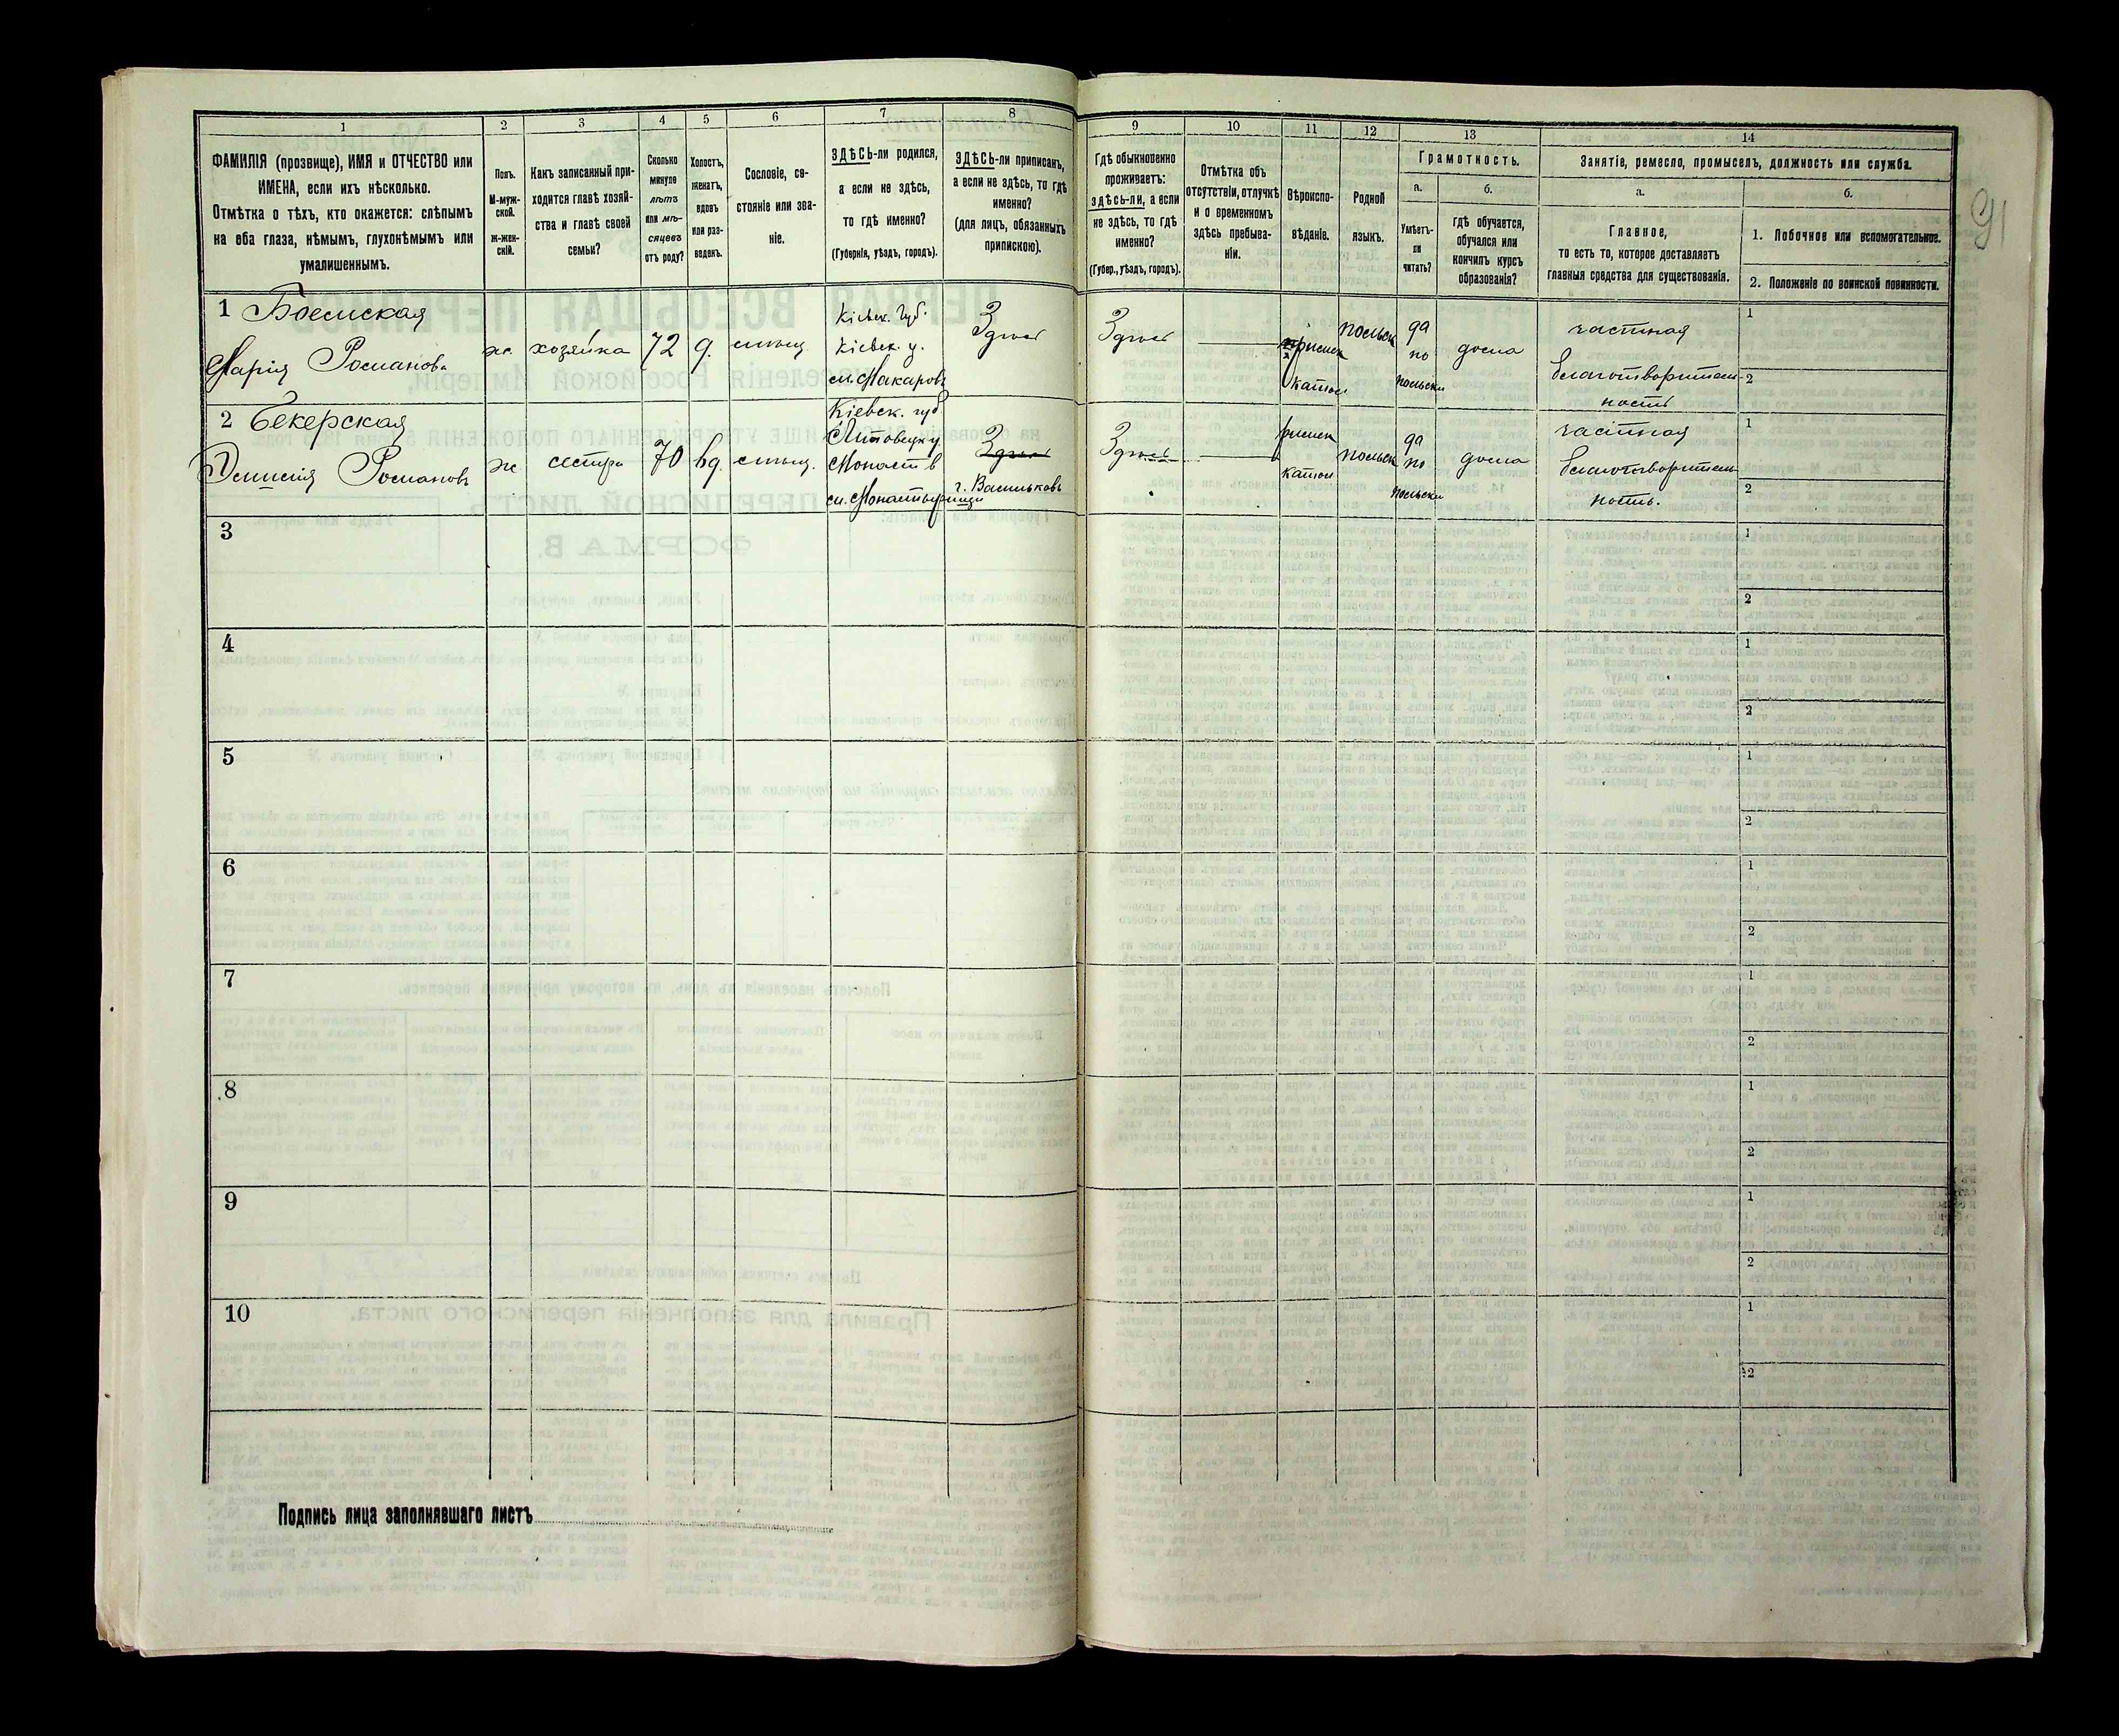 1
2
3
4
5
6
7
8
9
10
11
12
13
14
ФАМИЛІЯ (прозвище), ИМЯ и ОТЧЕСТВО или
ИМЕНА, если ихъ нѣсколько.
Отмѣтка о тѣхъ, кто окажется: слѣпымъ
на оба глаза, нѣмымъ, глухонѣмымъ или
умалишеннымъ.
Полъ.
М-муж-
ской.
Ж-жен-
скій.
Какъ записанный при-
ходится главѣ хозяй-
ства и главѣ своей
семьи?
Сколько
минуло
лѣтъ
или мѣ-
сяцевъ
отъ роду?
Холостъ,
женатъ,
вдовъ
или раз-
веденъ.
Сословіе, со-
стояніе или зва-
ніе.
ЗДѢСЬ-ли родился,
а если не здѣсь,
то гдѣ именно?
(Губернія, уѣздъ, городъ).
ЗДѢСЬ-ли приписанъ,
а если не здѣсь, то гдѣ
именно?
(для лицъ, обязанныхъ
припискою).
Гдѣ обыкновенно
проживаетъ:
здѣсь-ли, а если
не здѣсь, то гдѣ
именно?
(Губер., уѣздъ, городъ).
Отмѣтка объ
отсутствіи, отлучкѣ
и о временномъ
здѣсь пребыва-
ніи.
Вѣроиспо-
вѣданіе.
Родной
языкъ.
Грамотность.
а.
Умѣетъ-
ли
читать?
б.
гдѣ обучается,
обучался или
кончилъ курсъ
образованія?
Занятіе, ремесло, промыселъ, должность или служба.
а.
Главное,
то есть то, которое доставляетъ
главныя средства для существованія.
б.
1. Побочное или вспомогательное.
2. Положеніе по воинской повинности.
91
1 Боемская
Марія Романов.
ж.
хозяйка
72
д.
Кіевск. губ.
Кіевск. у.
м. Макаровъ
Здѣсь
Здѣсь
римск
катол
польск
да
по
польски
дома
частная
благотворитель-
ность
1
2
2 Бекерская
Романов
ж
сестра
70
вд.
Кіевск. губ
м. Монастырищи
Здѣсь
г. Васильковъ
Здѣсь
римск
катол
польск
да
по
польски
дома
частная
благотворитель
ность.
1
2
3
1
2
4
1
2
5
1
2
6
1
2
7
1
2
8
1
2
9
1
2
10
1
2
Подпись лица заполнявшаго листъ